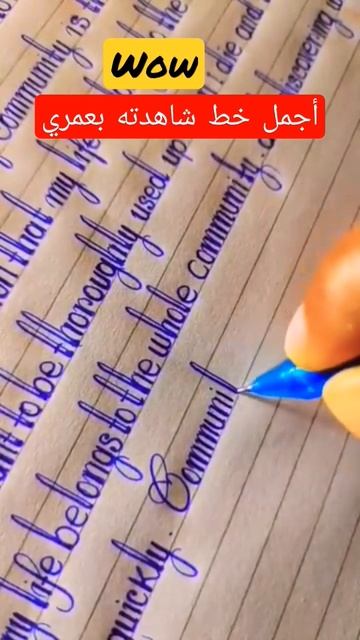 Wow
أجمل خط شاهدته بعمري
Community is
die and
discovering
that my life
the
to be thoroughly used up
my life belongs to the whole community.
quickly. Communit